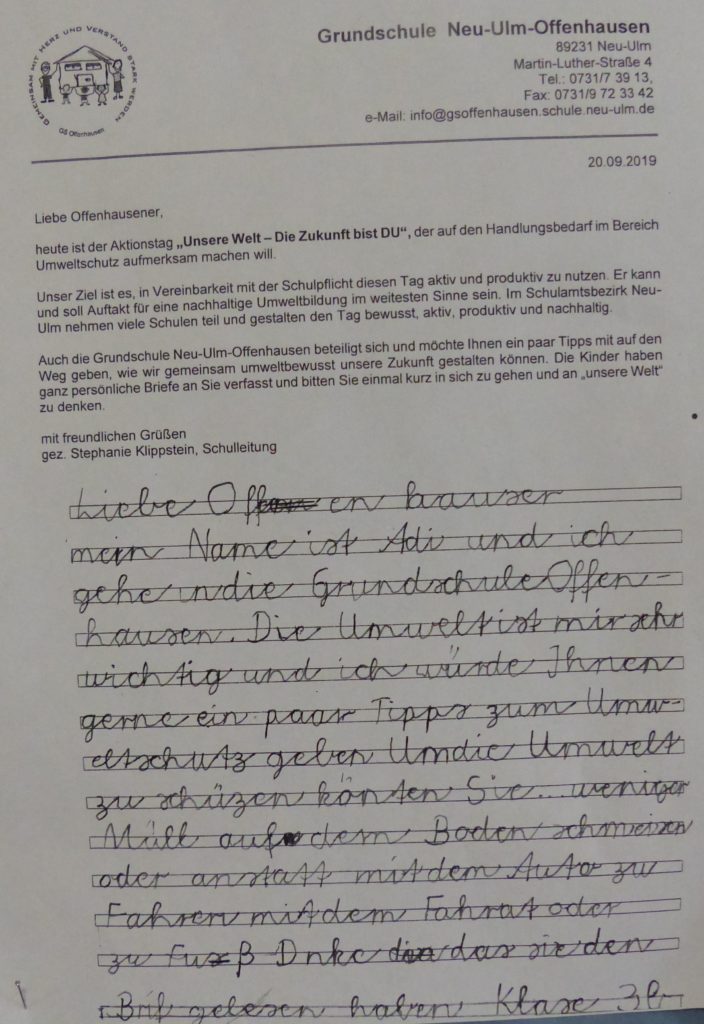 GEMEINSAM MIT HERZ UND VERSTAND STARK WERDEN
GS Offenhausen
Grundschule Neu-Ulm-Offenhausen
89231 Neu-Ulm
Martin-Luther-Straße 4
Tel.: 0731/7 39 13,
Fax: 0731/9 72 33 42
e-Mail: info@gsoffenhausen.schule.neu-ulm.de
20.09.2019
Liebe Offenhausener,
heute ist der Aktionstag „Unsere Welt – Die Zukunft bist DU“, der auf den Handlungsbedarf im Bereich
Umweltschutz aufmerksam machen will.
Unser Ziel ist es, in Vereinbarkeit mit der Schulpflicht diesen Tag aktiv und produktiv zu nutzen. Er kann
und soll Auftakt für eine nachhaltige Umweltbildung im weitesten Sinne sein. Im Schulamtsbezirk Neu-
Ulm nehmen viele Schulen teil und gestalten den Tag bewusst, aktiv, produktiv und nachhaltig.
Auch die Grundschule Neu-Ulm-Offenhausen beteiligt sich und möchte Ihnen ein paar Tipps mit auf den
Weg geben, wie wir gemeinsam umweltbewusst unsere Zukunft gestalten können. Die Kinder haben
ganz persönliche Briefe an Sie verfasst und bitten Sie einmal kurz in sich zu gehen und an „unsere Welt“
zu denken.
mit freundlichen Grüßen
gez. Stephanie Klippstein, Schulleitung
Liebe Off en hauser
mein Name ist Adi und ich
gehe in die Grundschule Offen-
hausen. Die Umwelt ist mir sehr
wichtig und ich würde Ihnen
gerne ein paar Tipps zum Umw-
eltschutz geben Um die Umwelt
zu schüzen könten Sie... weniger
Müll auf dem Boden schmeizen
oder anstatt mit dem Auto zu
Fahren mit dem Fahrat oder
zu Fuß Dnke das sie den
Brif gelesen haben Klase 3b